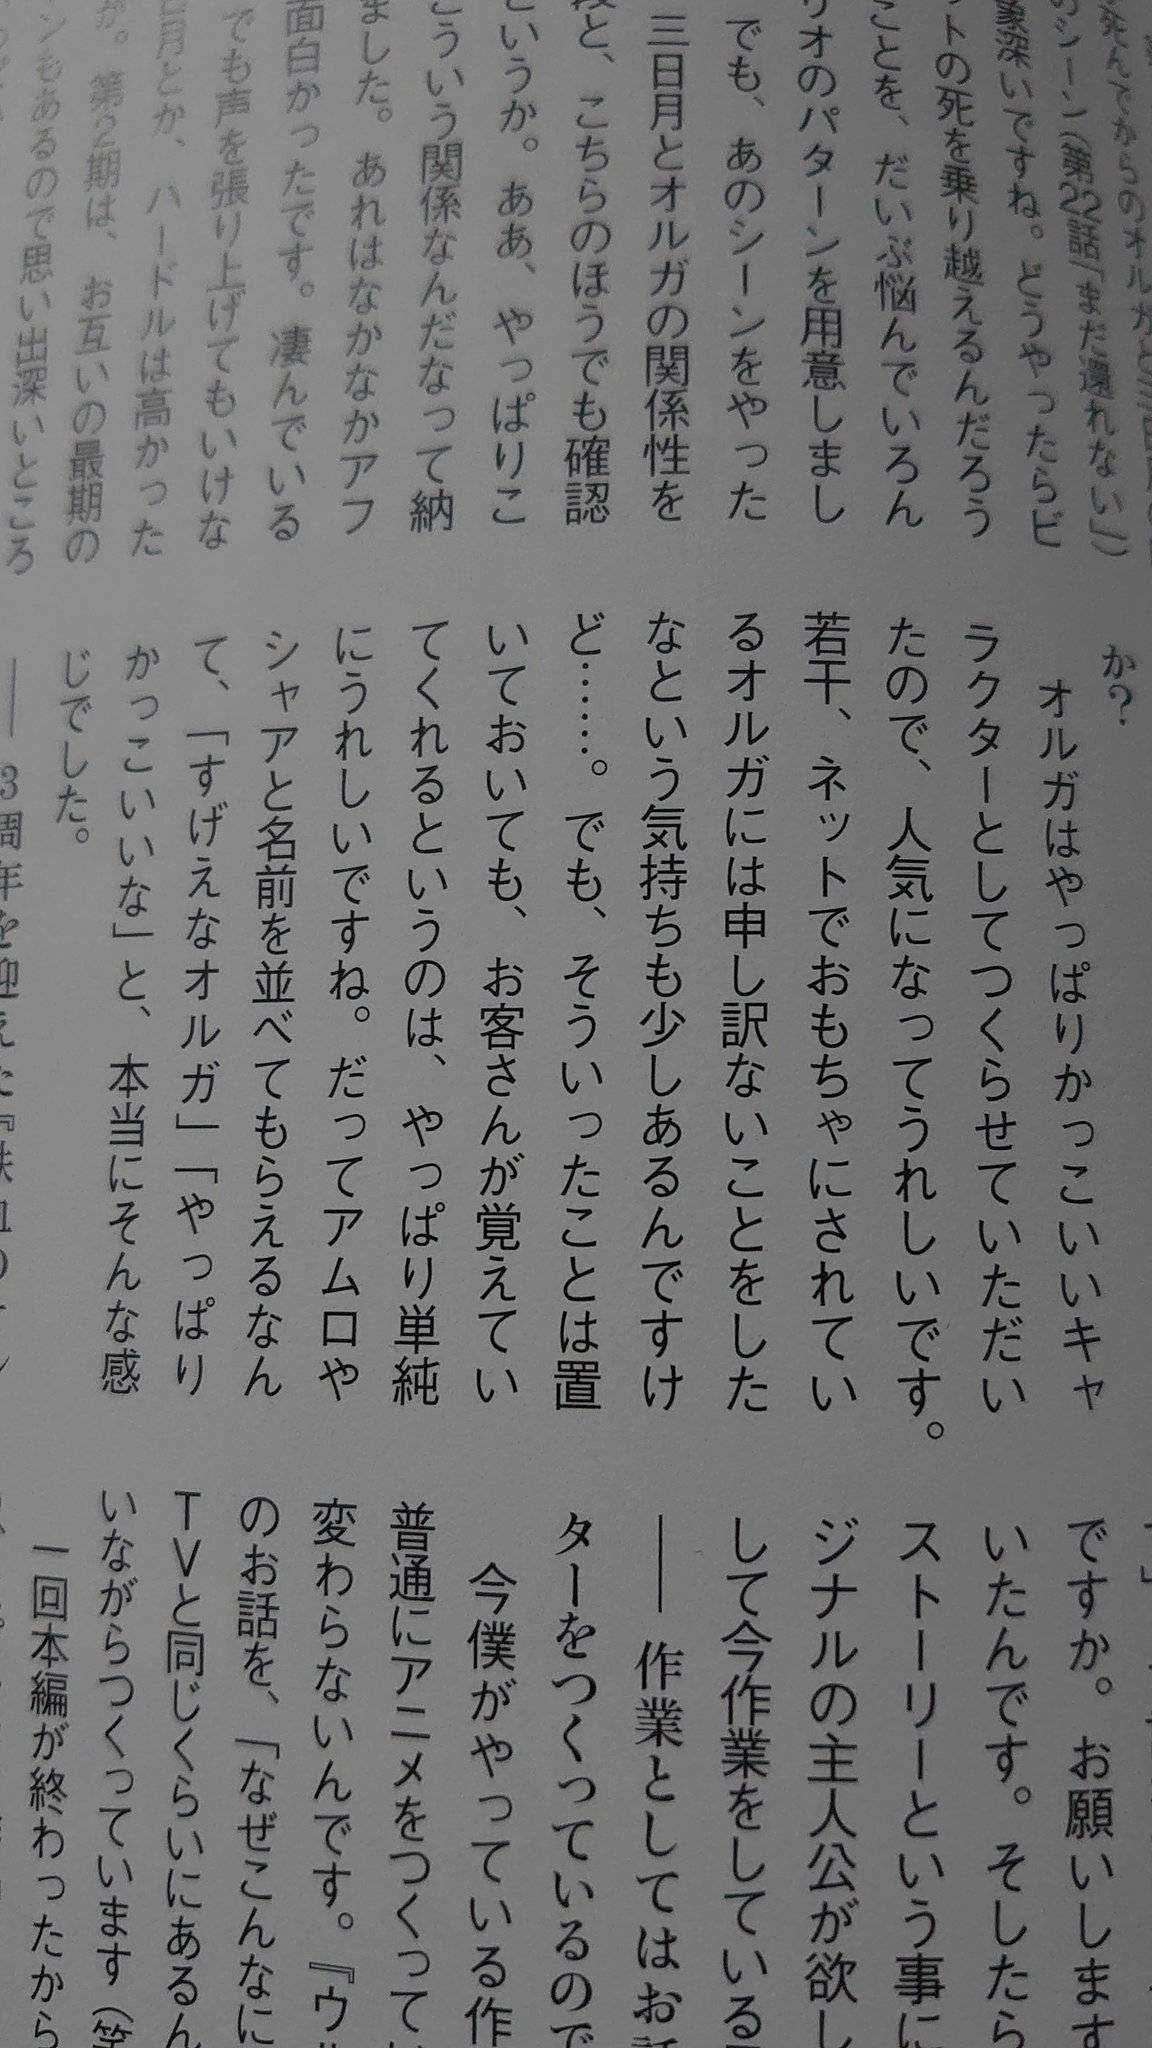 死んでからのオルガと三日月
のシーン(第22話「まだ還れない」)
象深いですね。どうやったらビ
ットの死を乗り越えるんだろう
ことを、だいぶ悩んでいろん
リオのパターンを用意しまし
でも、あのシーンをやった
三日月とオルガの関係性を
段と、こちらのほうでも確認
というか。ああ、やっぱりこ
こういう関係なんだなって納
ました。あれはなかなかアフ
面白かったです。凄んでいる
でも声を張り上げてもいけな
日月とか、ハードルは高かった
か。第2期は、お互いの最期の
ンもあるので思い出深いところ
か?
オルガはやっぱりかっこいいキャ
ラクターとしてつくらせていただい
たので、人気になってうれしいです。
若干、ネットでおもちゃにされてい
るオルガには申し訳ないことをした
なという気持ちも少しあるんですけ
ど……。でも、そういったことは置
いておいても、お客さんが覚えてい
てくれるというのは、やっぱり単純
にうれしいですね。だってアムロや
シャアと名前を並べてもらえるなん
て、「すげえなオルガ」「やっぱり
かっこいいな」と、本当にそんな感
じでした。
――3周年を迎えた『鉄血の
ですか。お願いします
いたんです。そしたら
ストーリーという事に
ジナルの主人公が欲し
して今作業をしている
――作業としてはお話
ターをつくっているので
今僕がやっている作
普通にアニメをつくって
変わらないんです。『ウル
のお話を、「なぜこんなに
TVと同じくらいにあるん
いながらつくっています(笑
一回本編が終わったから